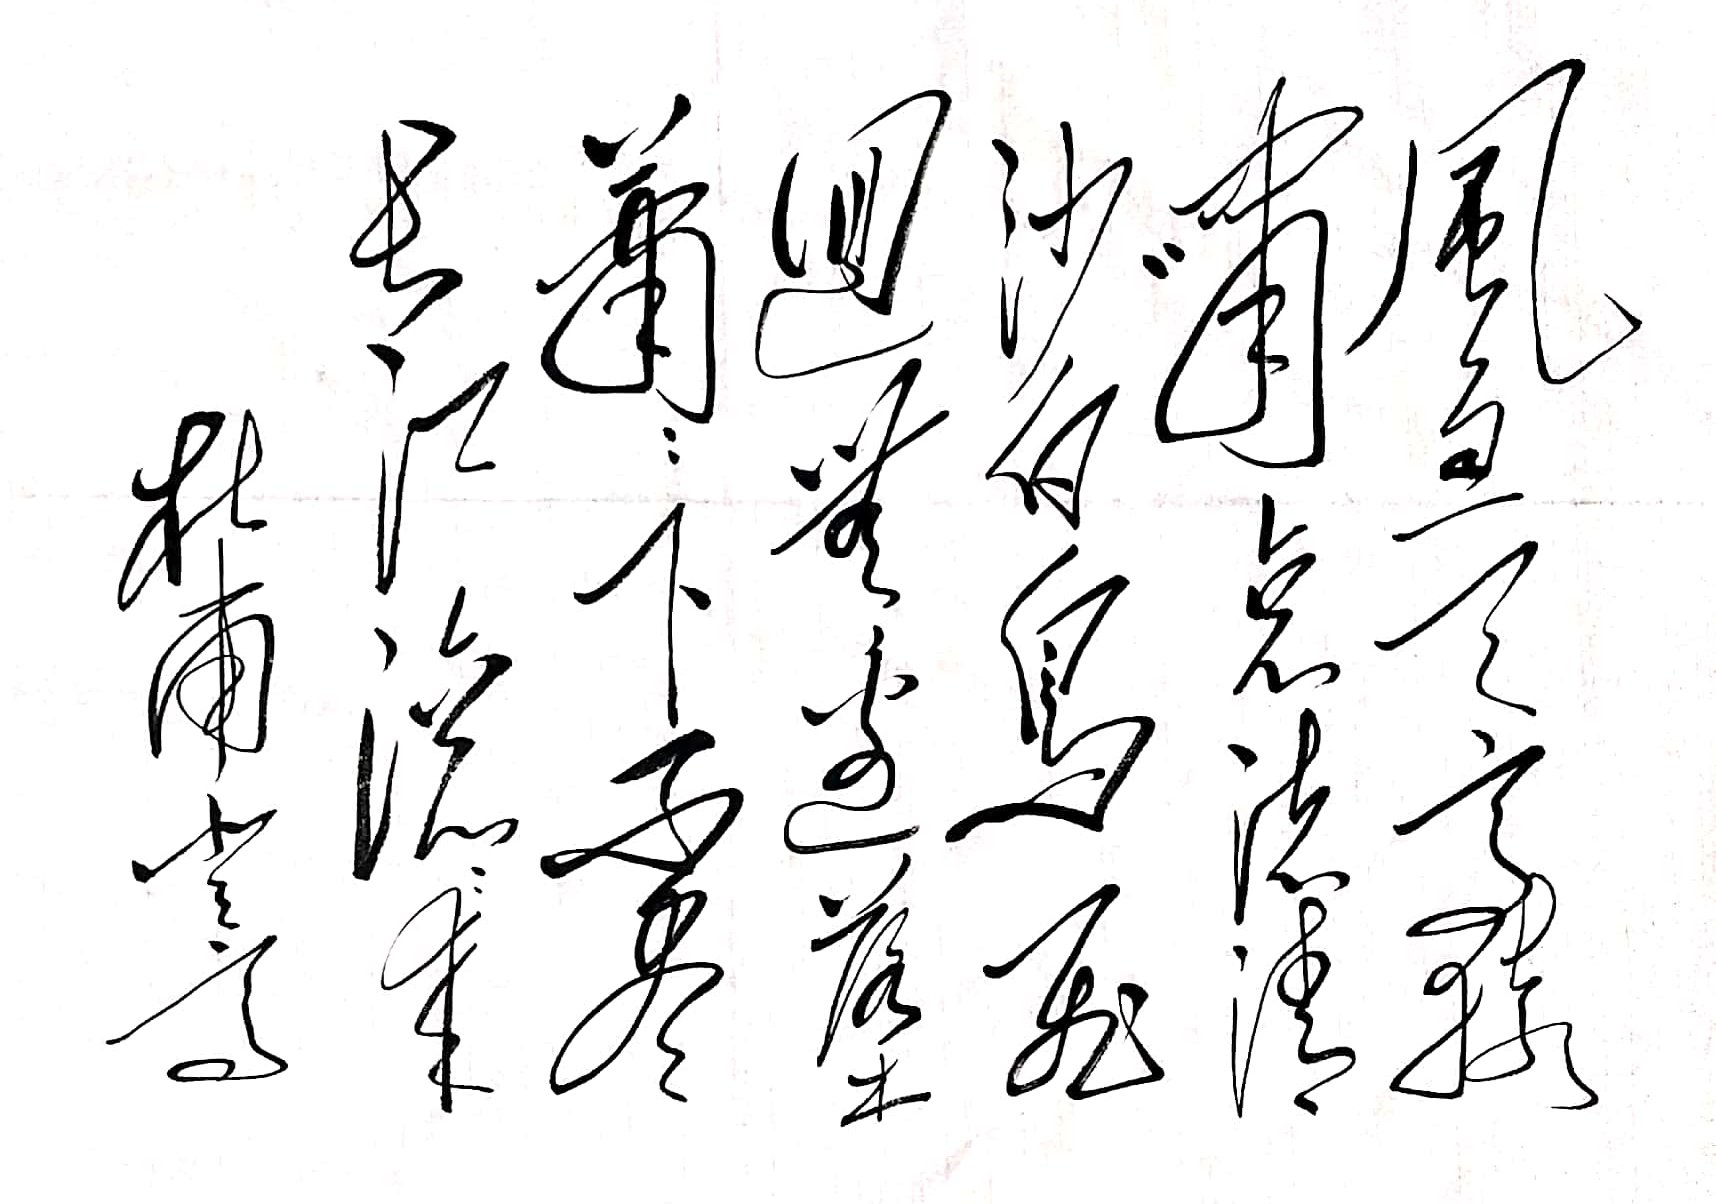 風急天高猿
嘯哀渚清
沙白鳥飛
迴無邊落木
蕭〻下不尽
長江滚〻来
杜甫登高